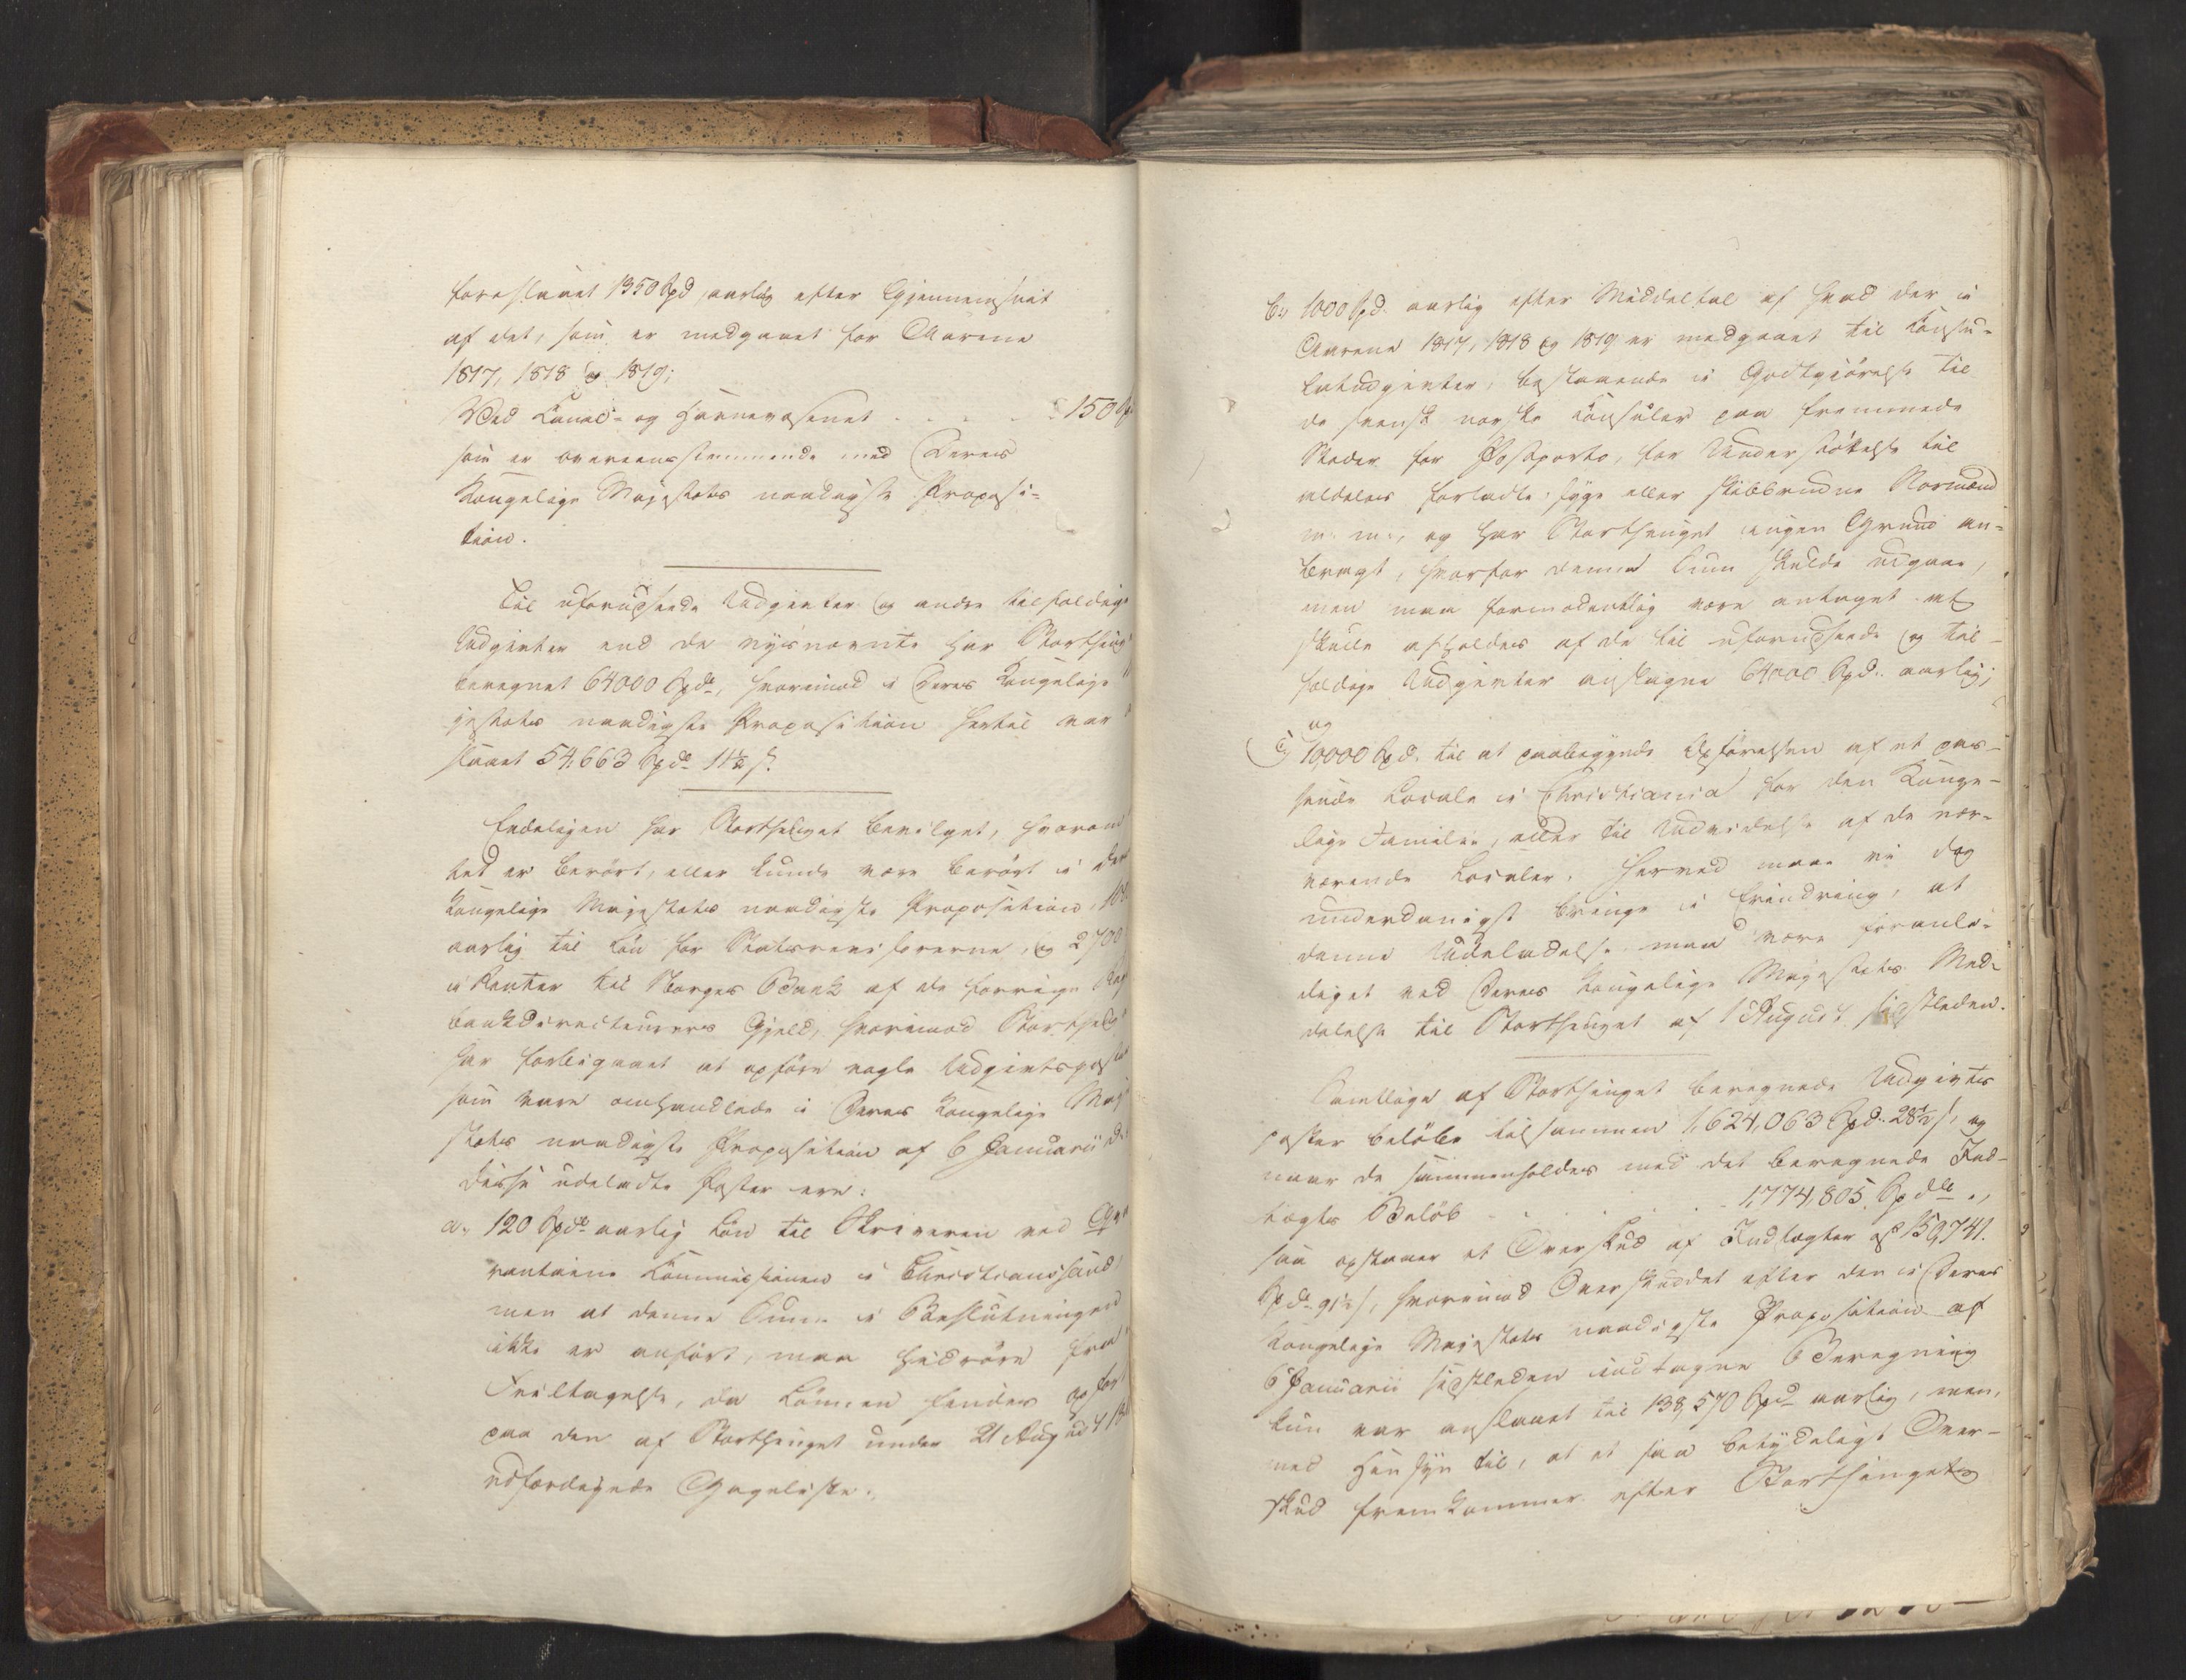 foreslaaet 1350 Spd aarlig efter Gjennemsnit
af det, som er medgaaet for Aarene
1817, 1818 og 1819;
Ved Canal- og Havnevæsenet . . . . 150 Sp
som er overeensstemmende med Deres
Kongelige Majestæts naadigste Proposi-
tion.
Til uforudseede Udgivter og andre tilfældige
Udgivter end de nysnævnte har Storthing
beregnet 64000 Spd, hvorimod i Deres Kongelige
jestæts naadigste Proposition hertil var
slaaet 54.663 Spd 11½ s.
Endeligen har Storthinget bevilget, hvorom
tet er berørt, eller kunde være berørt i Deres
Kongelige Majestæts naadigste Proposition,
aarlig til Løn for Statsrevisorerne, og 2700
i Renter til Norges Bank af de forrige
Bankdirecteurers Gjeld, hvorimod Storthing
har forbigaaet at opføre nogle Udgivtsposter
som vare omhandlede i Deres Kongelige Maj
stæts naadigste Proposition af 6 Januarii d.
Disse udeladte Poster ere:
a, 120 Spd aarlig Løn til Skriveren ved Qva
rantaine Commissionen i Christianssand,
men at denne Sum i Beslutningen
ikke er anført, maa hidrøre fra
Feiltagelse, da Lønnen findes opført
paa den af Storthinget under 21 August
udfærdigede Gageliste.
b, 1000 Spd. aarlig efter Middeltal af hvad der i
Aarene 1817, 1818 og 1819 er medgaaet til Consu-
latudgivter, bestaaende i Godtgiørelse til
de svensk norske Consuler paa fremmede
Steder for Postporto, for Understøttelse til
aldeles forladte, syge eller skibbrudne Normænd
m: m:, og har Storthinget ingen Grund an-
bragt, hvorfor denne Sum skulde udgaae,
men maa formodentlig være antaget at
skulle afholdes af de til uforudseede og til-
fældige Udgivter anslagne 64000 Spd. aarlig;
og
c, 10,000 Spd. til at paabegynde Opførelsen af et pas-
sende Locale i Christiania for den Konge-
lige Familie, eller til Udvidelse af de nær-
værende Localer. Herved maae vi dog
underdanigst bringe i Erindring, at
denne Udeladelse maa være foranle-
diget ved Deres Kongelige Majestæts Med-
delelse til Storthinget af 1 August sidstleden.
Samtlige af Storthinget beregnede Udgivts
poster beløbe tilsammen 1,624,063 Spd. 28½ s, og
naar de sammenholdes med det beregnede Ind-
tægts Beløb . . . . . . 1,774,805. Spdlr .,
saa opstaaer et Overskud af Indtægter af 150,741.
Spd. 91½ s, hvorimod Overskuddet efter den i Deres
Kongelige Majestæts naadigste Proposition af
6 Januarii sidstleden indtagne Beregning
kun var anslaaet til 138,570 Spd aarlig, men,
med Hensyn til, at et saa betydeligt Over-
skud fremkommer efter Storthingets